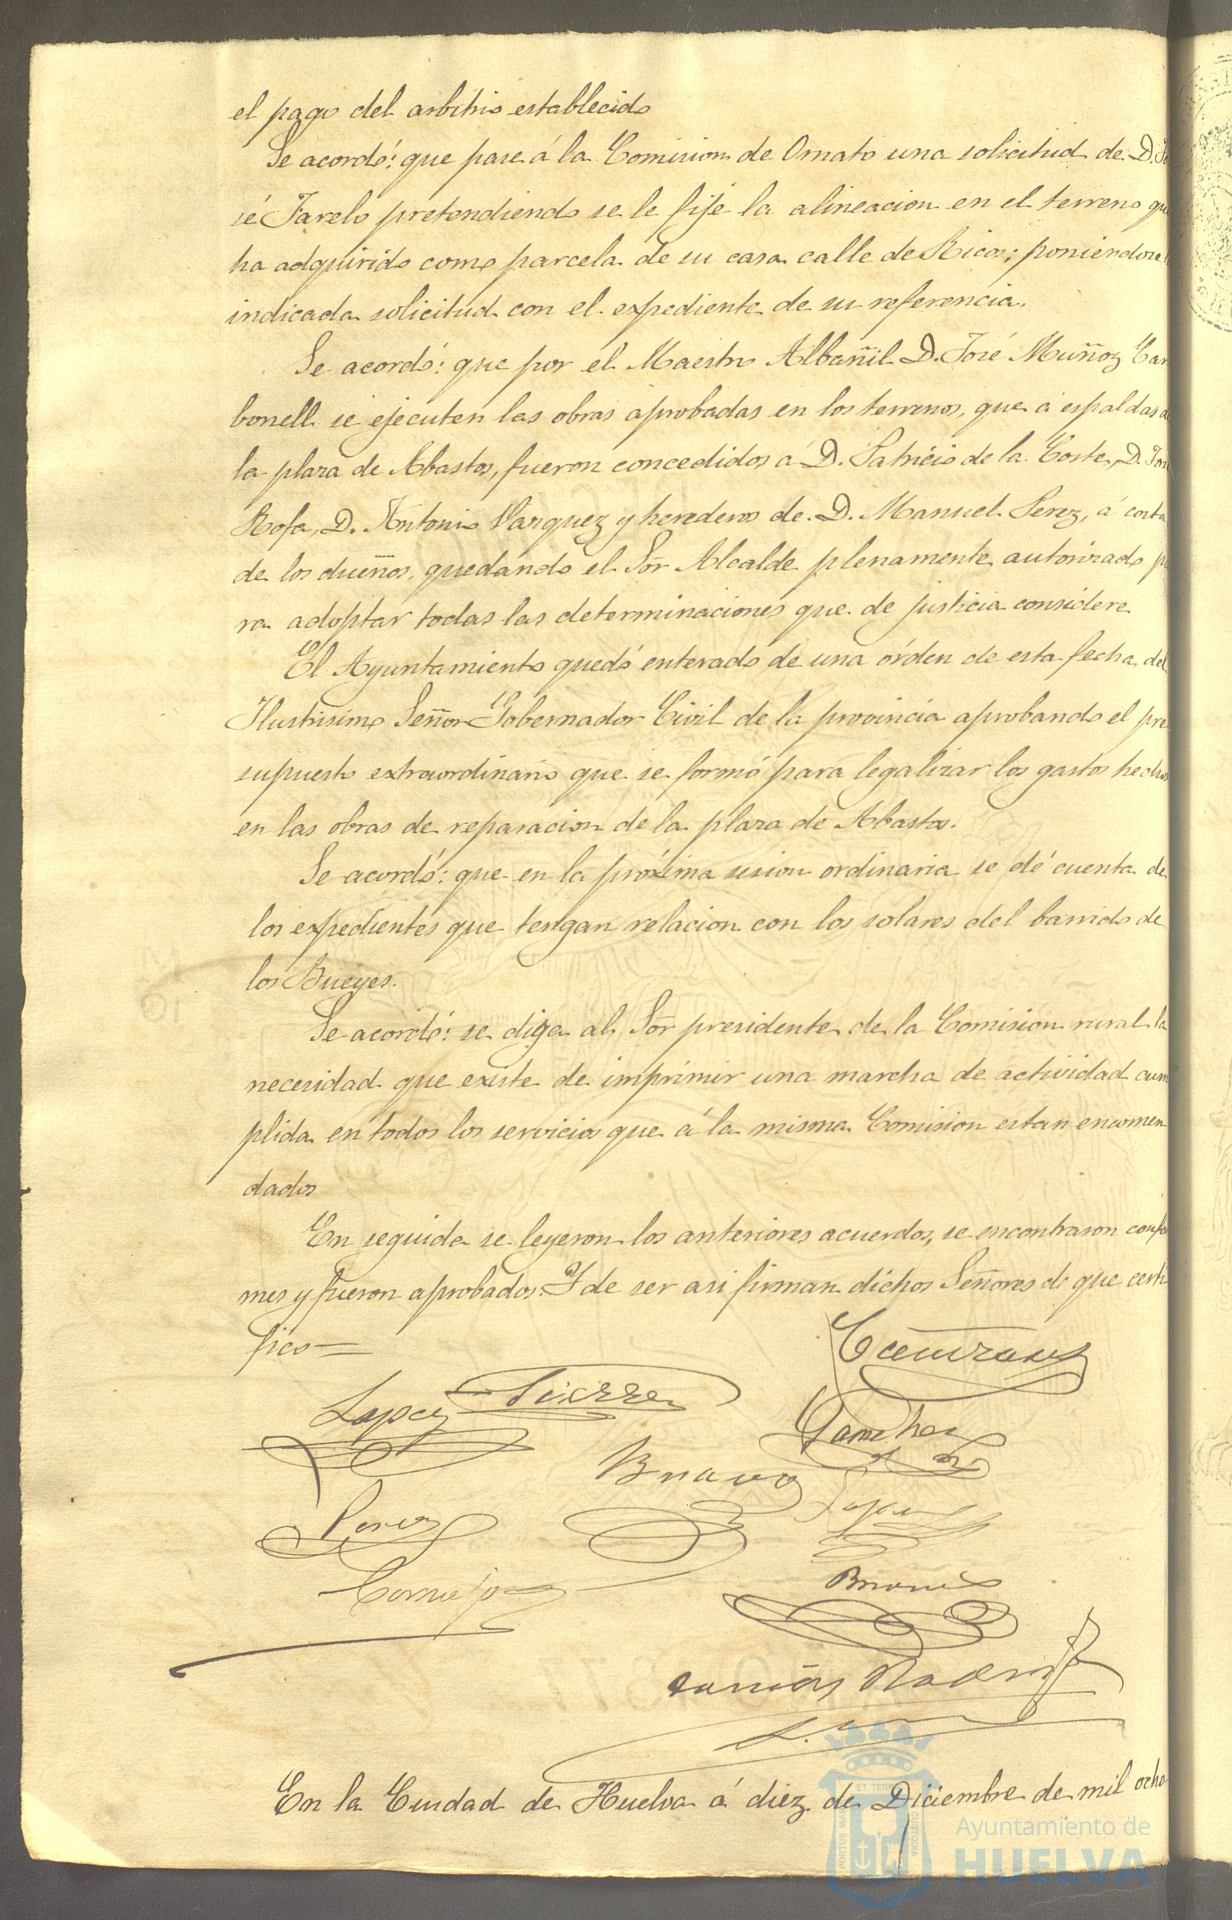 el pago del arbitrio establecido
Se acordó: que pase á la Comision de Ornato una solicitud de D. Jo
sé Tarelo pretendiendo se le fije la alineacion en el terreno que
ha adquirido como parcela de su casa calle de Rico; poniendose
indicada solicitud con el expediente de su referencia.
Se acordó: que por el Maestro Albañil D. José Muñoz Car
bonell se ejecuten las obras aprobadas en los terrenos, que á espaldas
la plaza de Abastos, fueron concedidos a D. Patricio de la Corte, D. José
Rofa, D. Antonio Vazquez y herederos de D. Manuel Perez, á costa
de los dueños, quedando el Sor Alcalde plenamente autorizado pa
ra adoptar todas las determinaciones que de justicia considere
El Ayuntamiento quedó enterado de una órden de esta fecha del
Ilustrisimo Señor Gobernador Civil de la provincia aprobando el pre
supuesto extraordinario que se formó para legalizar los gastos hechos
en las obras de reparacion de la plaza de Abastos.
Se acordó: que en la próxima sesion ordinaria se dé cuenta de
los expedientes que tengan relacion con los solares del barrido de
los Bueyes.
Se acordó: se diga al Sor presidente de la Comision rural la
necesidad que existe de imprimir una marcha de actividad cum
plida en todos los servicios que á la misma Comision estan encomen
dados
En seguida se leyeron los anteriores acuerdos, se encontraron confor
mes y fueron aprobados. Y de ser asi firman dichos Señores de que certi
fico=
Lopez
Sanchez
Bravo
Lopez
Perez
Cornejo
En la Ciudad de Huelva á diez de Diciembre de mil ocho
Ayuntamiento de
HUELVA